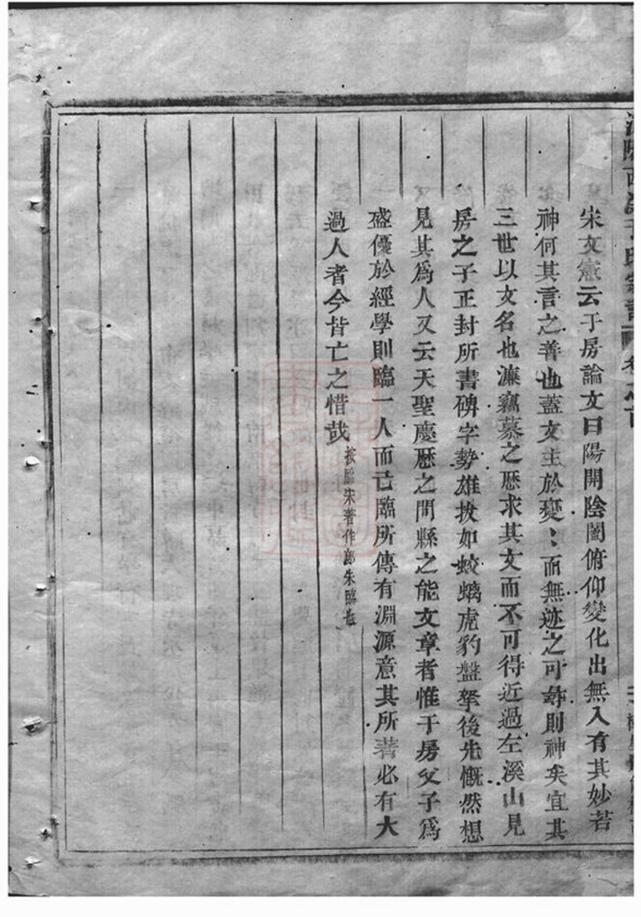 宋文憲云于房論文曰陽開陰闔俯仰變化出無入有其妙若
神何其言之善也蓋文主於變：而無迹之可尋則神矣宜其
三世以文名也濂竊慕之歷求其文而不可得近過左溪山見
房之子正封所書碑字勢雄拔如蛟螭虎豹盤拏後先慨然想
見其爲人又云天聖慶歷之間縣之能文章者惟于房父子爲
盛優於經學則臨一人而已臨所傳有淵源意其所著必有大
過人者今皆亡之惜哉
按臨朱著作郎朱臨也